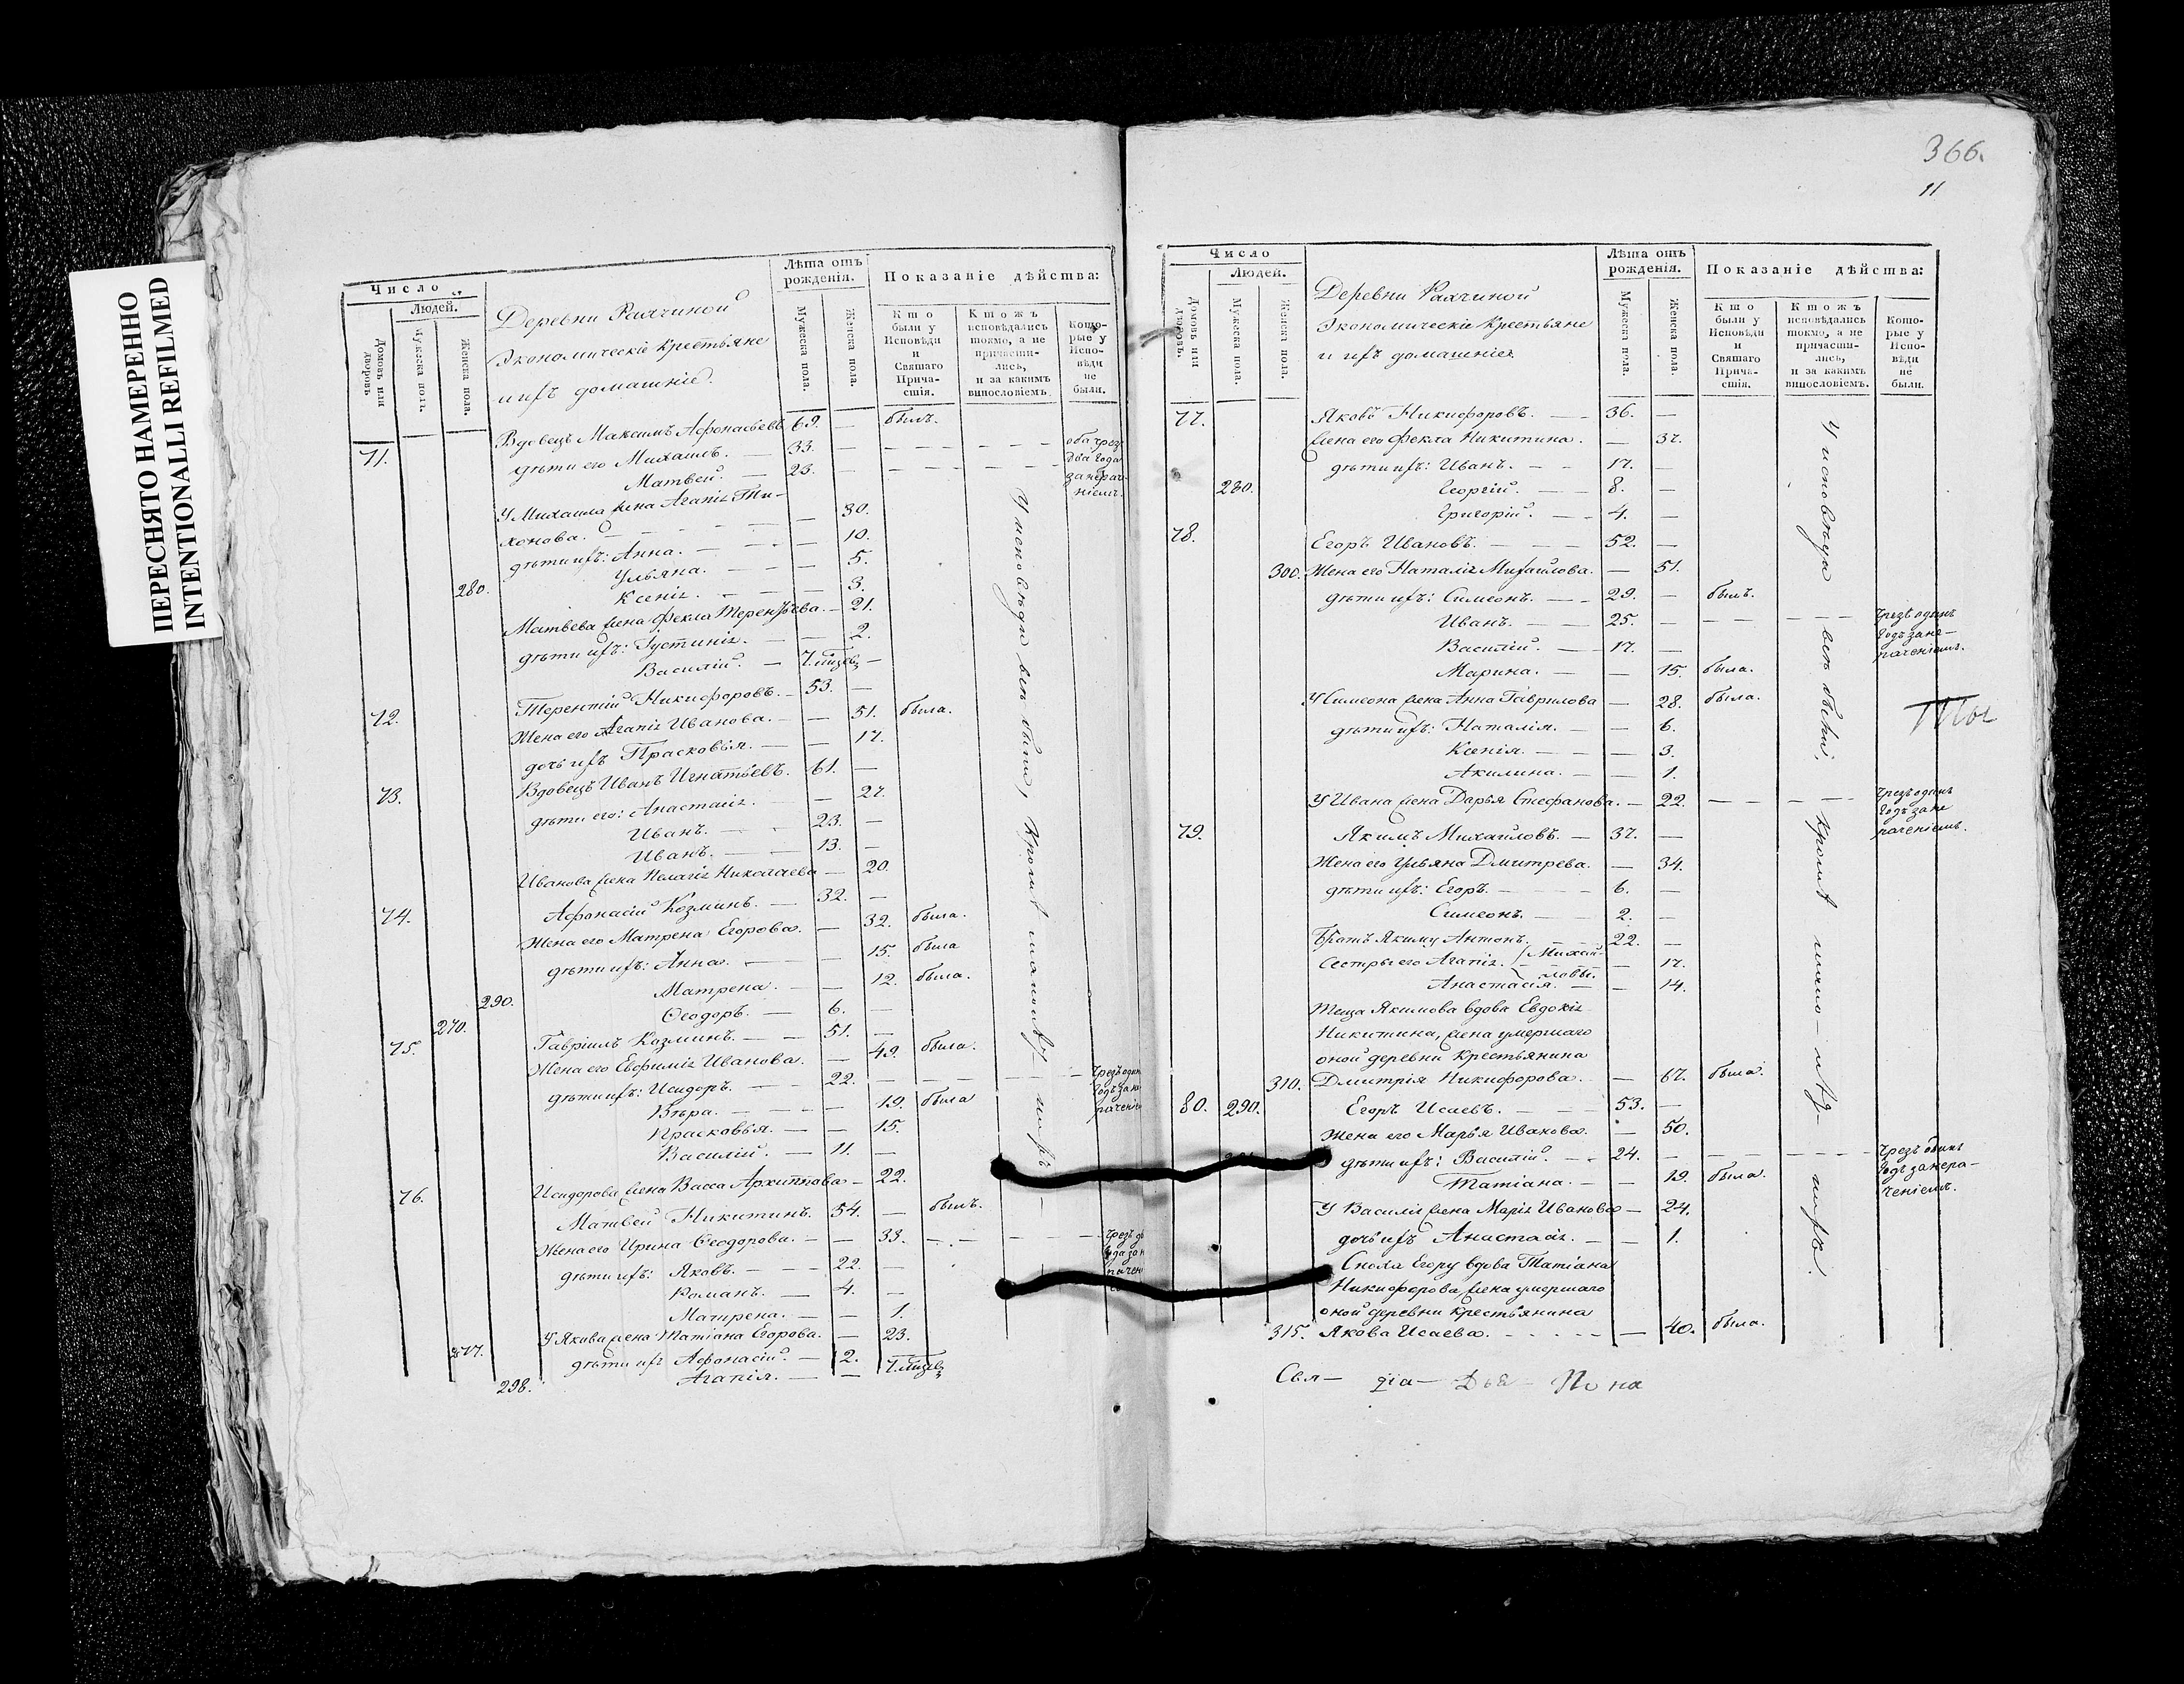 ПЕРЕСНЯТО НАМЕРЕННО
INTENTIONALLI REFILMED
Число
Людей.
Домовъ или дворовъ
Мужеска пола.
Женска пола.
Деревни Раячиной
Экономическіе Крестьяне
и ихъ домашніе.
Лѣта отъ рожденія.
Мужеска пола.
Женска пола.
Показаніе дѣйства:
Кто были у Исповѣди и Святаго Причастія.
Ктожъ исповѣдались токмо, а не причастились, и за какимъ винословіемъ
Которые у Исповѣди не были.
71. Вдовецъ Максимъ Афонасьевъ 69. — былъ.
дѣти его Михаилъ. — 33. — оба чрез
Матвей. — 23. — два года
за нерачениемъ.
У Михаила жена Агапія Ти-
хонова. — 30.
дѣти ихъ: Анна. — 10.
Ульяна. — 5.
280. Ксенія. — 3.
Матвева жена Фекла Терентьева. — 21.
дѣти ихъ: Іустинія. — 2.
Василій. — 7. мѣсяцъ —
72. Терентій Никифоровъ. — 53. —
Жена его Агапія Иванова. — 51. была.
дочь ихъ Прасковья. — 17.
73. Вдовецъ Иванъ Игнатьевъ. 61. —
дѣти его: Анастасія. — 27.
Иванъ. — 23. —
Иванъ. — 13. —
Иванова жена Пелагія Николаева — 20.
74. Афонасій Козминъ. — 32. —
Жена его Матрена Егорова. — 32. была.
дѣти ихъ: Анна. — 15. была
290. Матрена. — 12. была.
270. Ѳеодоръ. — 6. —
75. Гавріилъ Козминъ. — 51. —
Жена его Евфимія Иванова. — 49. была.
дѣти ихъ: Исидоръ. — 22. — чрезъ один
годъ за не
рачение
Вѣра. — 19. была
Прасковья. — 15.
Василій. — 11. —
Исидорова жена Васса Архиппова — 22.
76. Матвей Никитинъ. 54. — былъ.
Жена его Ирина Ѳеодорова. — 33. — чрезъ дв
года за н
рачен
дѣти ихъ: Яковъ. — 22. —
Романъ. — 4. —
Матрена. — 1.
У Якова жена Татіана Егорова. — 23.
277. дѣти ихъ Афонасій. — 2.
298. Агапія. — 7. мѣсяцъ
У исповѣди всѣ были, Кромѣ малолѣт — ихъ
366.
11
Число
Людей.
Домовъ или дворовъ.
Мужеска пола.
Женска пола.
Деревни Раячиной
Экономическіе Крестьяне
и ихъ домашніе
Лѣта отъ рожденія.
Мужеска пола.
Женска пола.
Показаніе дѣйства:
Кто были у Исповѣди и Святаго Причастія.
Ктожъ исповѣдались токмо, а не причастились, и за какимъ винословіемъ.
Которые у Исповѣди не были.
77. Яковъ Никифоровъ. — 36. —
Жена его Фекла Никитина. — 37.
дѣти ихъ: Иванъ. — 17. —
280. Георгій. — 8. —
Григорій. — 4. —
78. Егоръ Ивановъ. — 52. —
300. Жена его Наталія Михайлова. — 51.
дѣти ихъ: Симеонъ. — 29. — былъ.
Иванъ. — 25. — чрезъ одинъ
годъ за не-
рачениемъ.
Василій. — 17. —
Марина. — 15. была.
У Симеона жена Анна Гаврилова — 28. была.
дѣти ихъ: Наталія. — 6.
Ксенія. — 3.
Акилина. — 1.
У Ивана жена Дарья Стефанова. — 22. — чрезъ одинъ
годъ за не
рачениемъ.
79. Якимъ Михайловъ. — 37. —
Жена его Ульяна Дмитрева. — 34.
дѣти ихъ: Егоръ. — 6. —
Симеонъ. — 2. —
Братъ Якиму Антонъ. 22. —
Сестры его Агапія. — 17.
Михай-
ловы.
Анастасія. — 14.
Теща Якимова вдова Евдокія
Никитина, жена умершаго
оной деревни Крестьянина
310. Дмитрія Никифорова. — 67. была.
80. 290. Егоръ Исаевъ. — 53. —
Жена его Марья Иванова. — 50.
дѣти ихъ: Василій. — 24. — чрезъ одинъ
годъ за нера-
чениемъ.
Татіана. — 19. была.
У Василія жена Марія Иванова — 24.
дочь ихъ Анастасія. — 1.
Сноха Егору вдова Татіана
Никифорова, жена умершаго
оной деревни Крестьянина
315. Якова Исаева. — 40. была.
У исповѣди всѣ были, Кромѣ мало — лѣт — ихъ.
Свя— діа— Два— По на